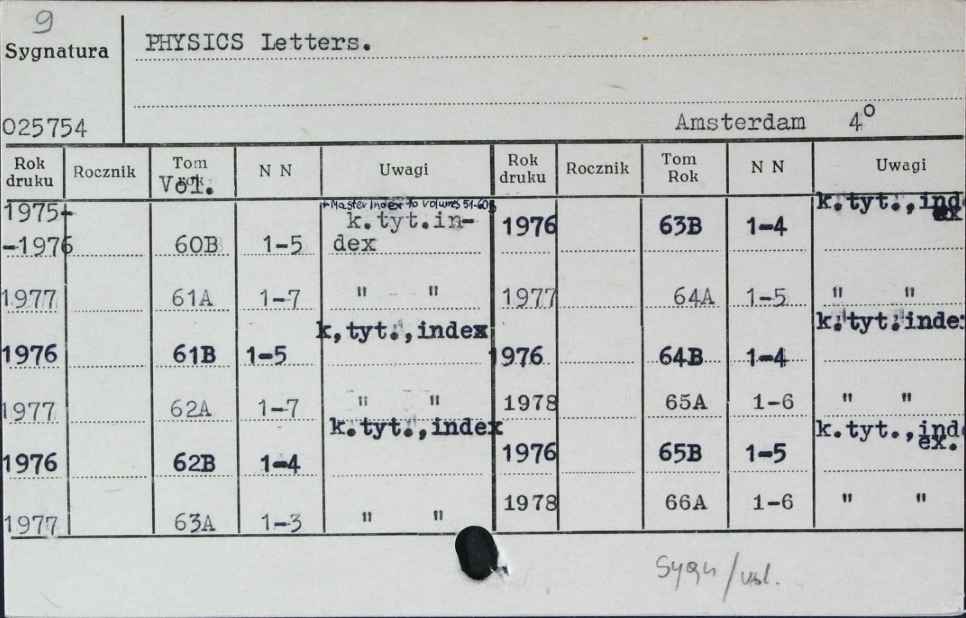 9
Sygnatura PHYSICS Letters.
025754 Amsterdam 4°
Rok druku Rocznik Tom Rok Vol. N N Uwagi Rok druku Rocznik Tom Rok N N Uwagi
+Master Index to volumes 51-60B
1975-
-1976 60B 1-5 k.tyt.in-
dex
1977 61A 1-7 " "
1976 61B 1-5 k,tyt.,index
1977 62A 1-7 " "
1976 62B 1-4 k.tyt.,index
1977 63A 1-3 " "
1976 63B 1-4 k.tyt.,ind
ex
1977 64A 1-5 " "
1976 64B 1-4 k.tyt.inde
1978 65A 1-6 " "
1976 65B 1-5 k.tyt.,ind
ex.
1978 66A 1-6 " "
Sygn/vol.